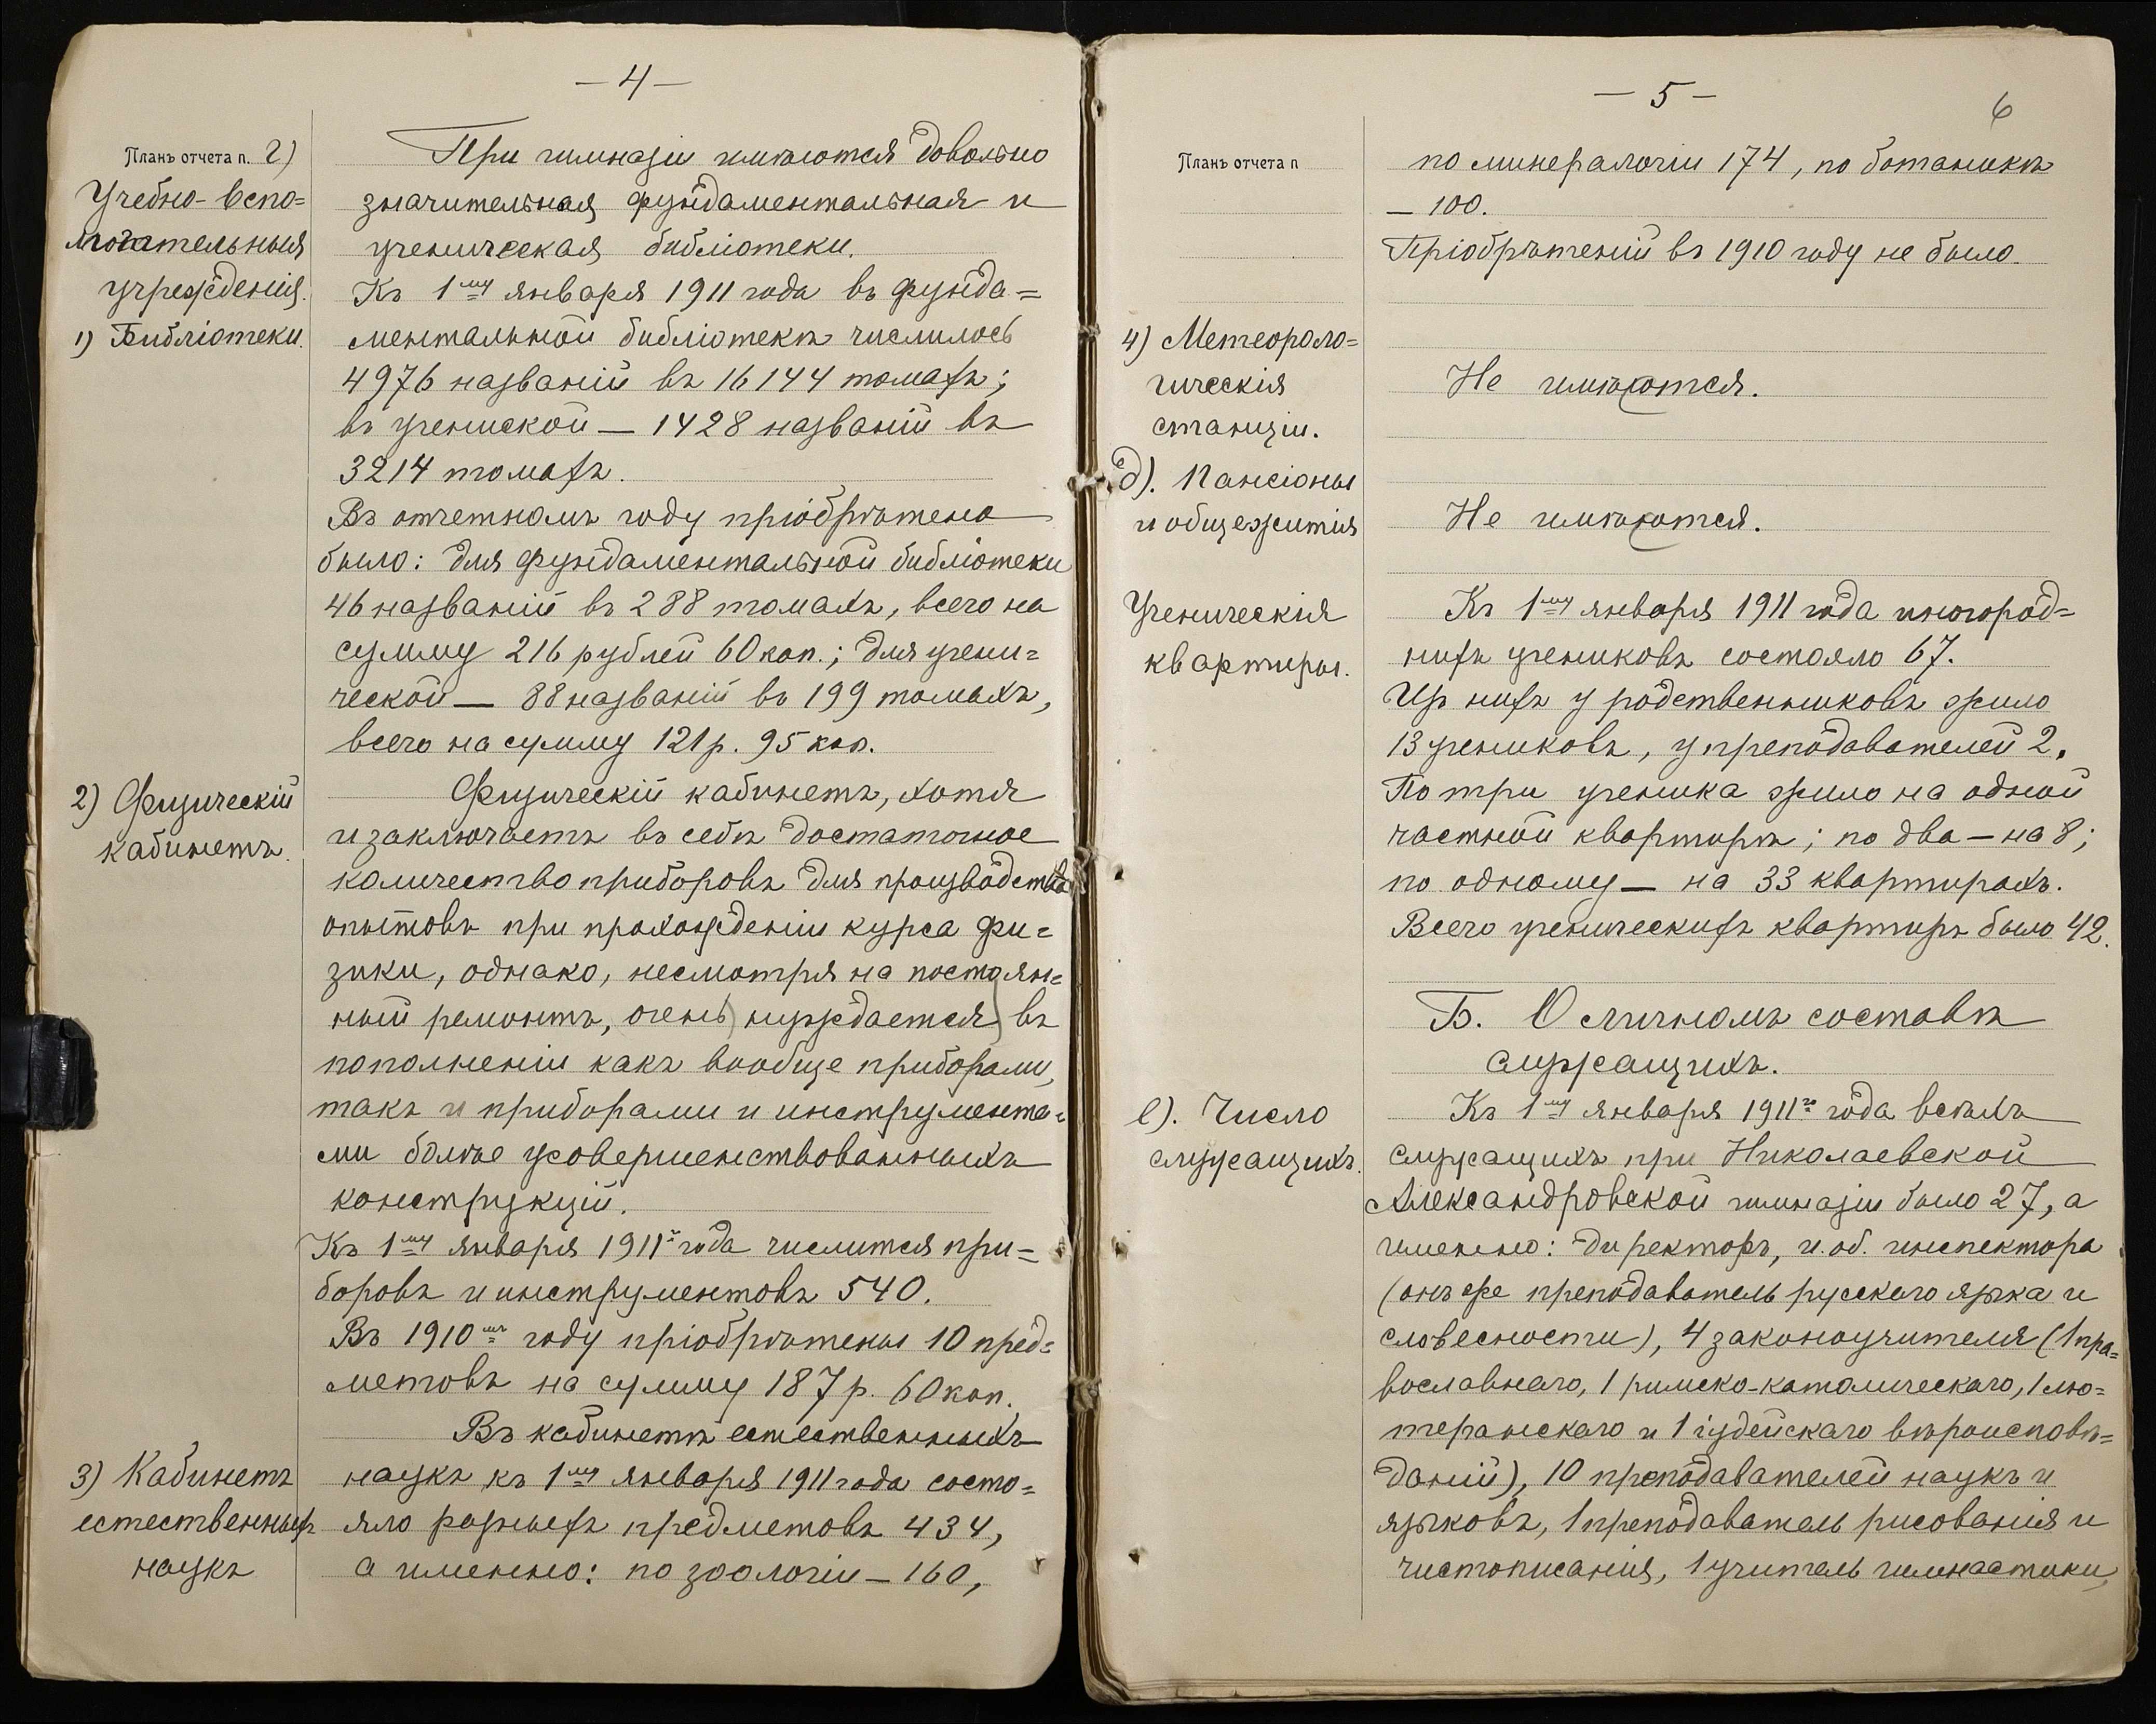 — 4 —
Планъ отчета п. г)
Учебно-вспо=
могательныя
учрежденія.
1) Библіотеки.
При гимназіи имѣются довольно
значительная фундаментальная и
ученическая библіотеки.
Къ 1му января 1911 года въ фунда=
ментальной библіотекѣ числилось
4976 названій въ 16144 томахъ;
въ ученической — 1428 названій въ
3214 томахъ.
Въ отчетномъ году пріобрѣтено
было: для фундаментальной библіотеки
46 названій въ 288 томахъ, всего на
сумму 216 рублей 60 коп.; для учени=
ческой — 88 названій въ 199 томахъ,
всего на сумму 121 р. 95 коп.
2) Физическій
кабинетъ.
Физическій кабинетъ, хотя
и заключаетъ въ себѣ достаточное
количество приборовъ для производства
опытовъ при прохожденіи курса фи=
зики, однако, несмотря на постоян=
ный ремонтъ, очень нуждается въ
пополненіи какъ вообще приборами,
такъ и приборами и инструмента=
ми болѣе усовершенствованныхъ
конструкцій.
Къ 1му января 1911г года числится при=
боровъ и инструментовъ 540.
Въ 1910мъ году пріобрѣтены 10 пред=
метовъ на сумму 187 р. 60 коп.
3) Кабинетъ
естественныхъ
наукъ
Въ кабинетѣ естественныхъ
наукъ къ 1му января 1911 года состо=
яло разныхъ предметовъ 434,
а именно: по зоологіи — 160,
— 5 —
6
Планъ отчета п
по минералогіи 174, по ботаникѣ
— 100.
Пріобрѣтеній въ 1910 году не было.
4) Метеороло=
гическія
станціи.
Не имѣются.
д). Пансіоны
и общежитія
Не имѣются.
Ученическія
квартиры.
Къ 1му января 1911 года иногород=
нихъ учениковъ состояло 67.
Изъ нихъ у родственниковъ жило
13 учениковъ, у преподавателей 2.
По три ученика жило на одной
частной квартирѣ; по два — на 8;
по одному — на 33 квартирахъ.
Всего ученическихъ квартиръ было 42.
Б. О личномъ составѣ
служащихъ.
е). Число
служащихъ.
Къ 1му января 1911го года всѣхъ
служащихъ при Николаевской
Александровской гимназіи было 27, а
именно: директоръ, и. об. инспектора
(онъ же преподаватель русскаго языка и
словесности), 4 законоучителя (1 пра=
вославнаго, 1 римско-католическаго, 1 лю=
теранскаго и 1 іудейскаго вѣроисповѣ=
даній), 10 преподавателей наукъ и
языковъ, 1 преподаватель рисованія и
чистописанія, 1 учитель гимнастики,